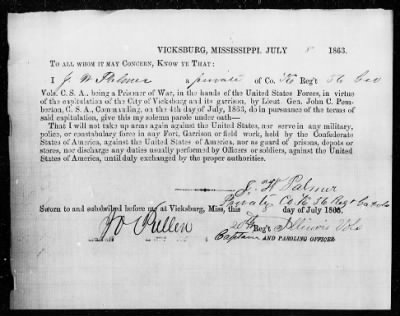 VICKSBURG, MISSISSIPPI. JULY 8 1863.
TO ALL WHOM IT MAY CONCERN, KNOW YE THAT:
I J W Palmer a private of Co. Reg't 56 Geo
Vols. C. S. A., being a Prisoner of War, in the hands of the United States Forces, in
virtue of the capitulation of the City of Vicksburg and its garrison, by Lieut. Gen. John C. Pem-
berton, C. S. A., Commanding, on the 4th day of July, 1863, do in pursuance of the terms of
said capitulation, give this my solemn parole under oath—
That I will not take up arms again against the United States, nor serve in any military,
police, or constabulary force in any Fort, Garrison or field work, held by the Confederate
States of America, against the United States of America, nor as guard of prisons, depots or
stores, nor discharge any duties usually performed by Officers or soldiers, against the United
States of America, until duly exchanged by the proper authorities.
J W Palmer
Private Co 56 Regt Ga Vols
Sworn to and subscribed before me at Vicksburg, Miss., this day of July 1863.
J O Pullen 20th Reg't Illinois Vols
Captain AND PAROLING OFFICER.